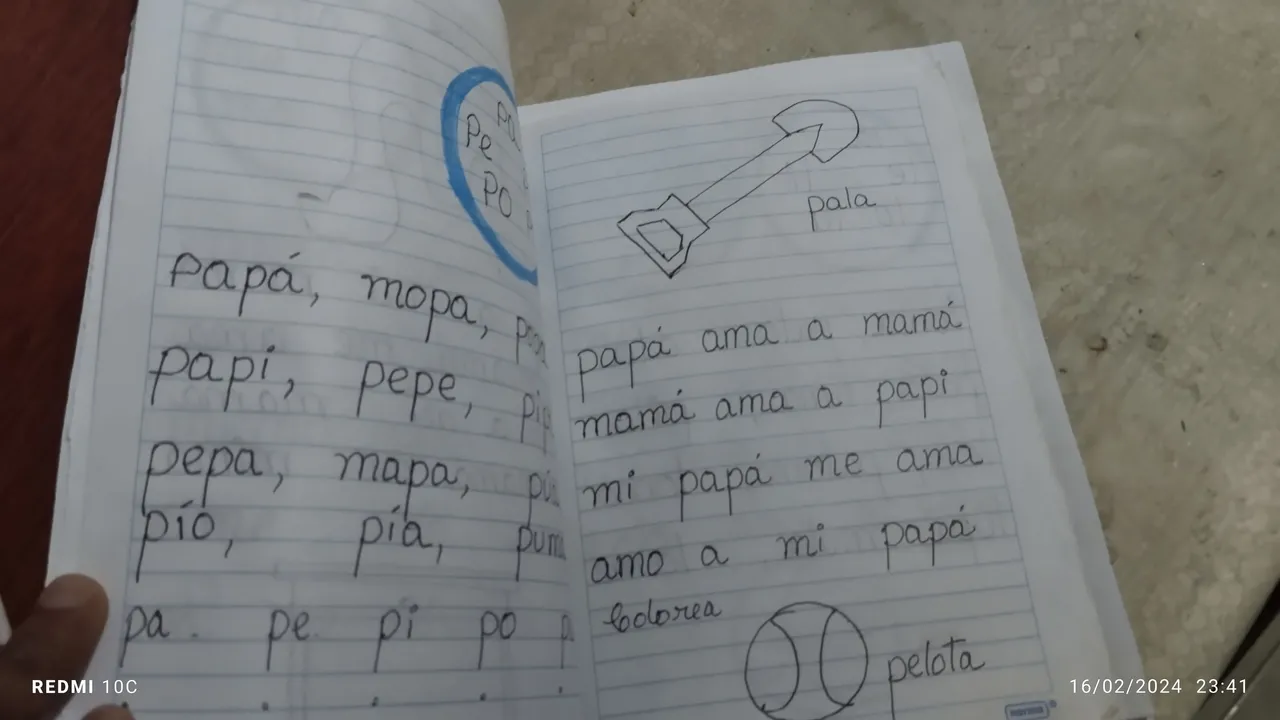 Pe
Po
papá, mopa,
papi, pepe,
pepa, mapa,
pío, pía,
pa. pe. pi po
pala
papá ama a mamá
mamá ama a papi
mi papá me ama
amo a mi papá
Colorea
pelota
norma
REDMI 10C
16/02/2024 23:41